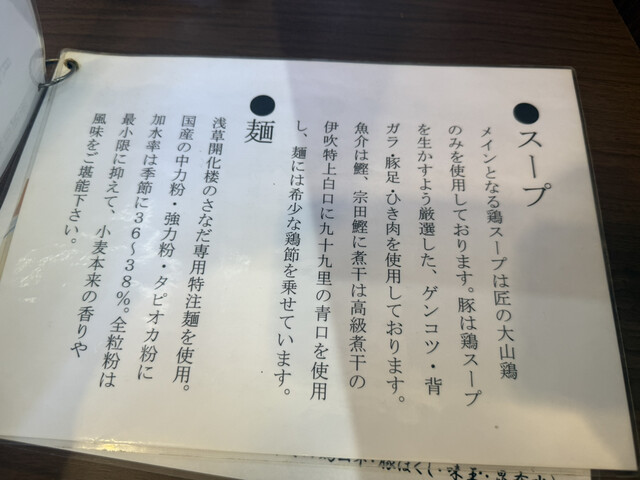 ●スープ
メインとなる鶏スープは匠の大山鶏
のみを使用しております。豚は鶏スープ
を生かすよう厳選した、ゲンコツ・背
ガラ・豚足・ひき肉を使用しております。
魚介は鰹、宗田鰹に煮干は高級煮干の
伊吹特上白口に九十九里の青口を使用
し、麺には希少な鶏節を乗せています。
●麺
浅草開化楼のさなだ専用特注麺を使用。
国産の中力粉・強力粉・タピオカ粉に
加水率は季節に36～38%。全粒粉は
最小限に抑えて、小麦本来の香りや
風味をご堪能下さい。
味玉